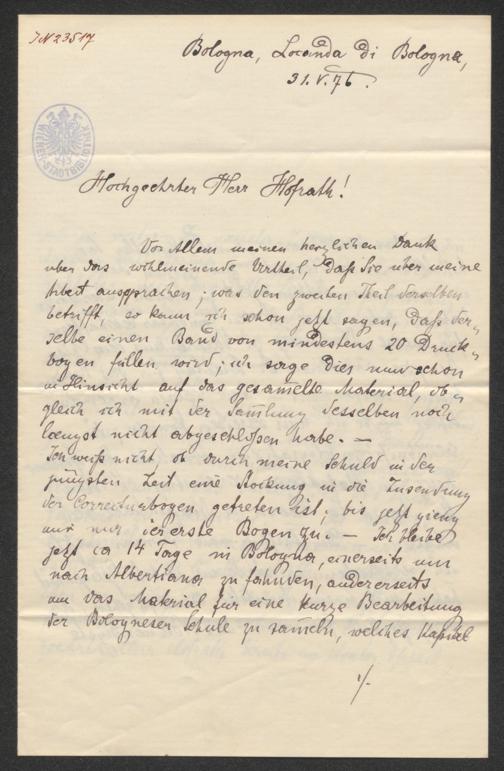 IN 23517
Bologna, Locanda di Bologna,
31. V. 76.
WIENER STADTBIBLIOTHEK
Hochgeehrter Herr Hofrath!
Vor Allem meinen herzlichen Dank
über das wohlmeinende Urtheil, daß Sie über meine
Arbeit aussprachen; was den zweiten Theil derselben
betrifft, so kann ich schon jetzt sagen, daß der-
selbe einen Band von mindestens 20 Druck-
bogen füllen wird; ich sage dies nur schon
in Hinsicht auf das gesamelte Material, ob-
gleich ich mit der Samlung desselben noch
laengst nicht abgeschloßen habe. —
Ich weiß nicht, ob durch meine Schuld in der
jüngsten Zeit eine Stockung in die Zusendung
der Correcturbogen getreten ist; bis jetzt gieng
mir nur der erste Bogen zu. — Ich bleibe
jetzt ca 14 Tage in Bologna, einerseits um
nach Albertiana zu fahnden, andererseits
um das Material für eine kurze Bearbeitung
der Bologneser Schule zu sameln, welches Kapitel
./.